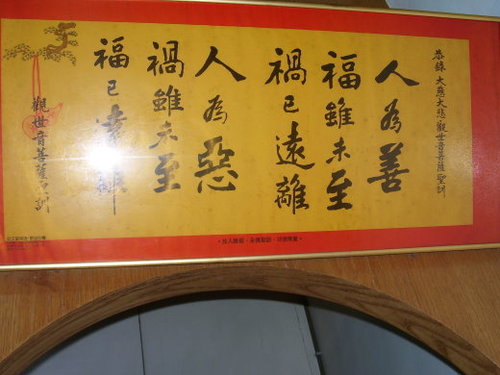 恭錄 大慈大悲觀世音菩薩聖訓
人為善
福雖未至
禍已遠離
人為惡
禍雖未至
福已遠離
觀世音菩薩聖訓